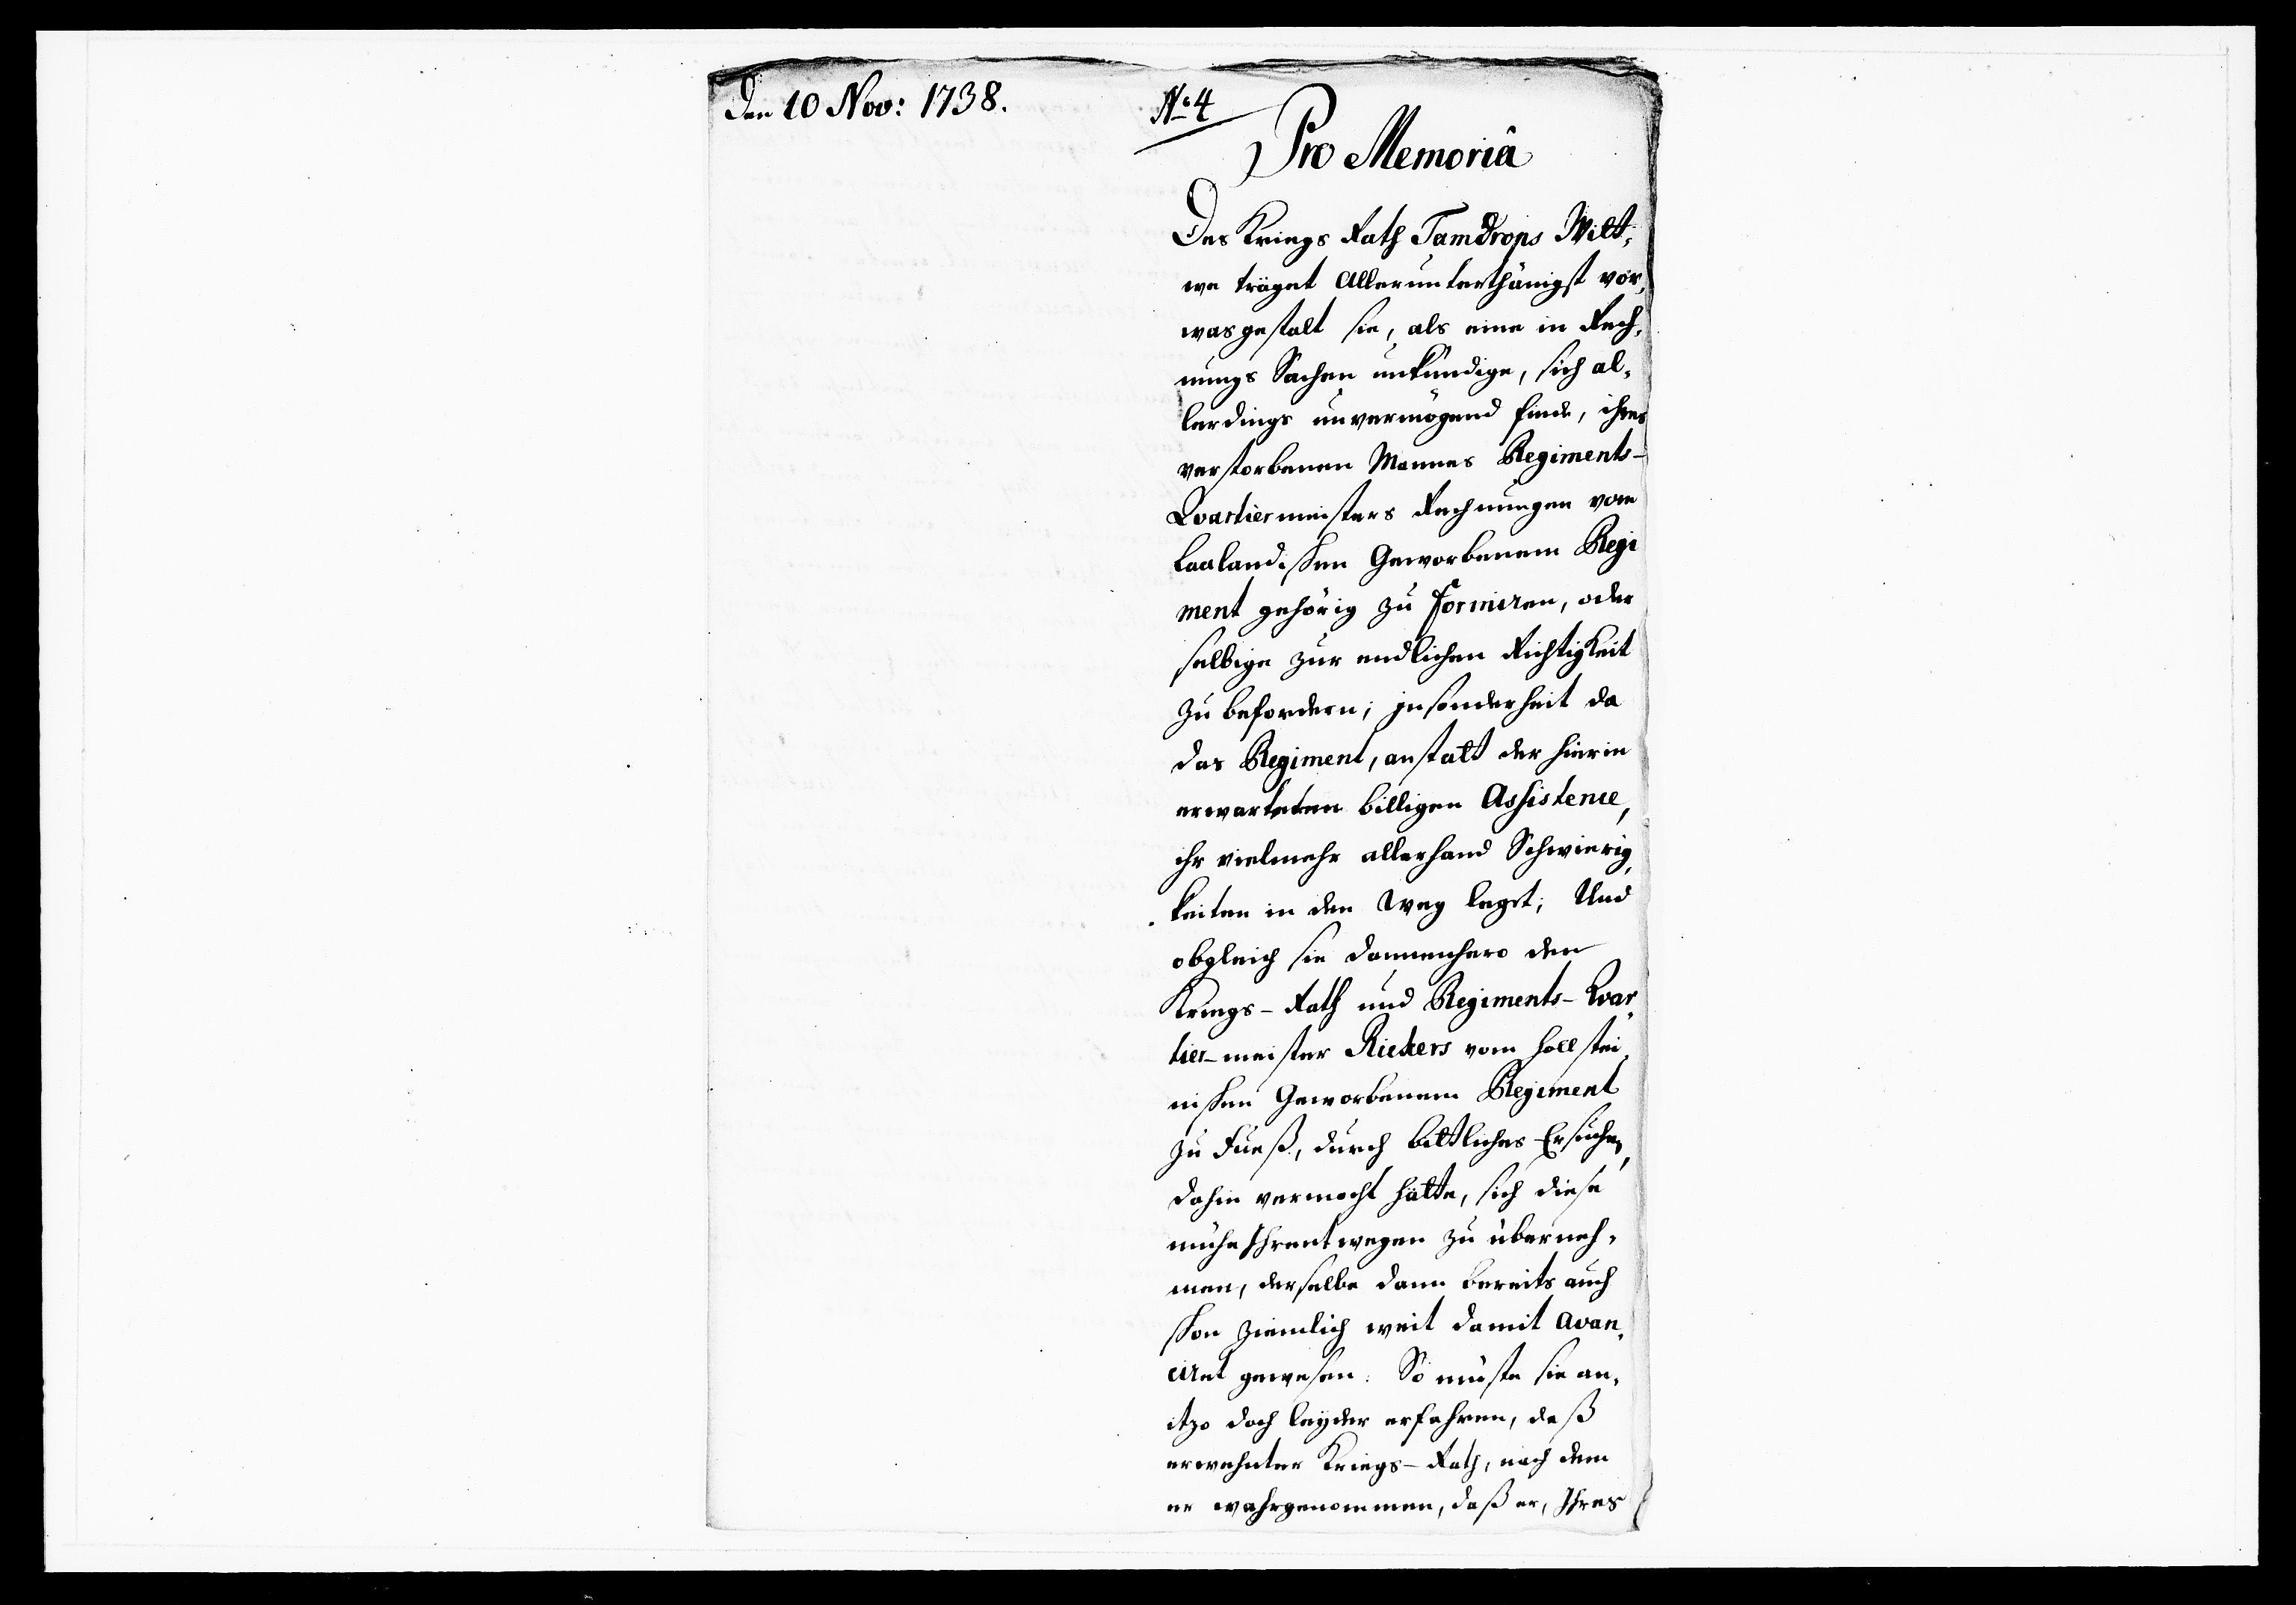 Den 10 Nov: 1738.
No 4
Pro Memoriâ
Des Kriegs Rath Tamdrops Witt,
we träget allerunterthänigst vor,
wasgestalt sie, als eine in Rech,
nungs Sachen unkundige, sich al,
lerdings unvermögend finde, ihres
verstorbenen Mannes Regiments-
Qvartiermeisters Rechnungen vom
Laalandischen Geworbenem Regi
ment gehörig zu formiren, oder
selbige zur endlichen Richtigkeit
zu befordern; insonderheit da
das Regiment, anstatt der hierin
erwarteten billigen Assistence,
ihr vielmehr allerhand Schwierig,
keiten in den Weg legt; Und
obgleich sie dannenhero den
Kriegs-Rath und Regiments-Qvar,
tier-meister Riekers vom Hollstei,
nischen Geworbenem Regiment
zu Fueß, durch bittliches Ersuchen,
dahin vermocht hätte, sich diese
mühe Ihrentwegen zu überneh,
men, derselbe dann bereits auch
schon ziemlich weit damit avan,
ciret gewesen: So müste sie an,
itzo doch leyder erfahren, daß
erwehnter Kriegs-Rath, nach dem
er wahrgenommen, daß er, Ihres